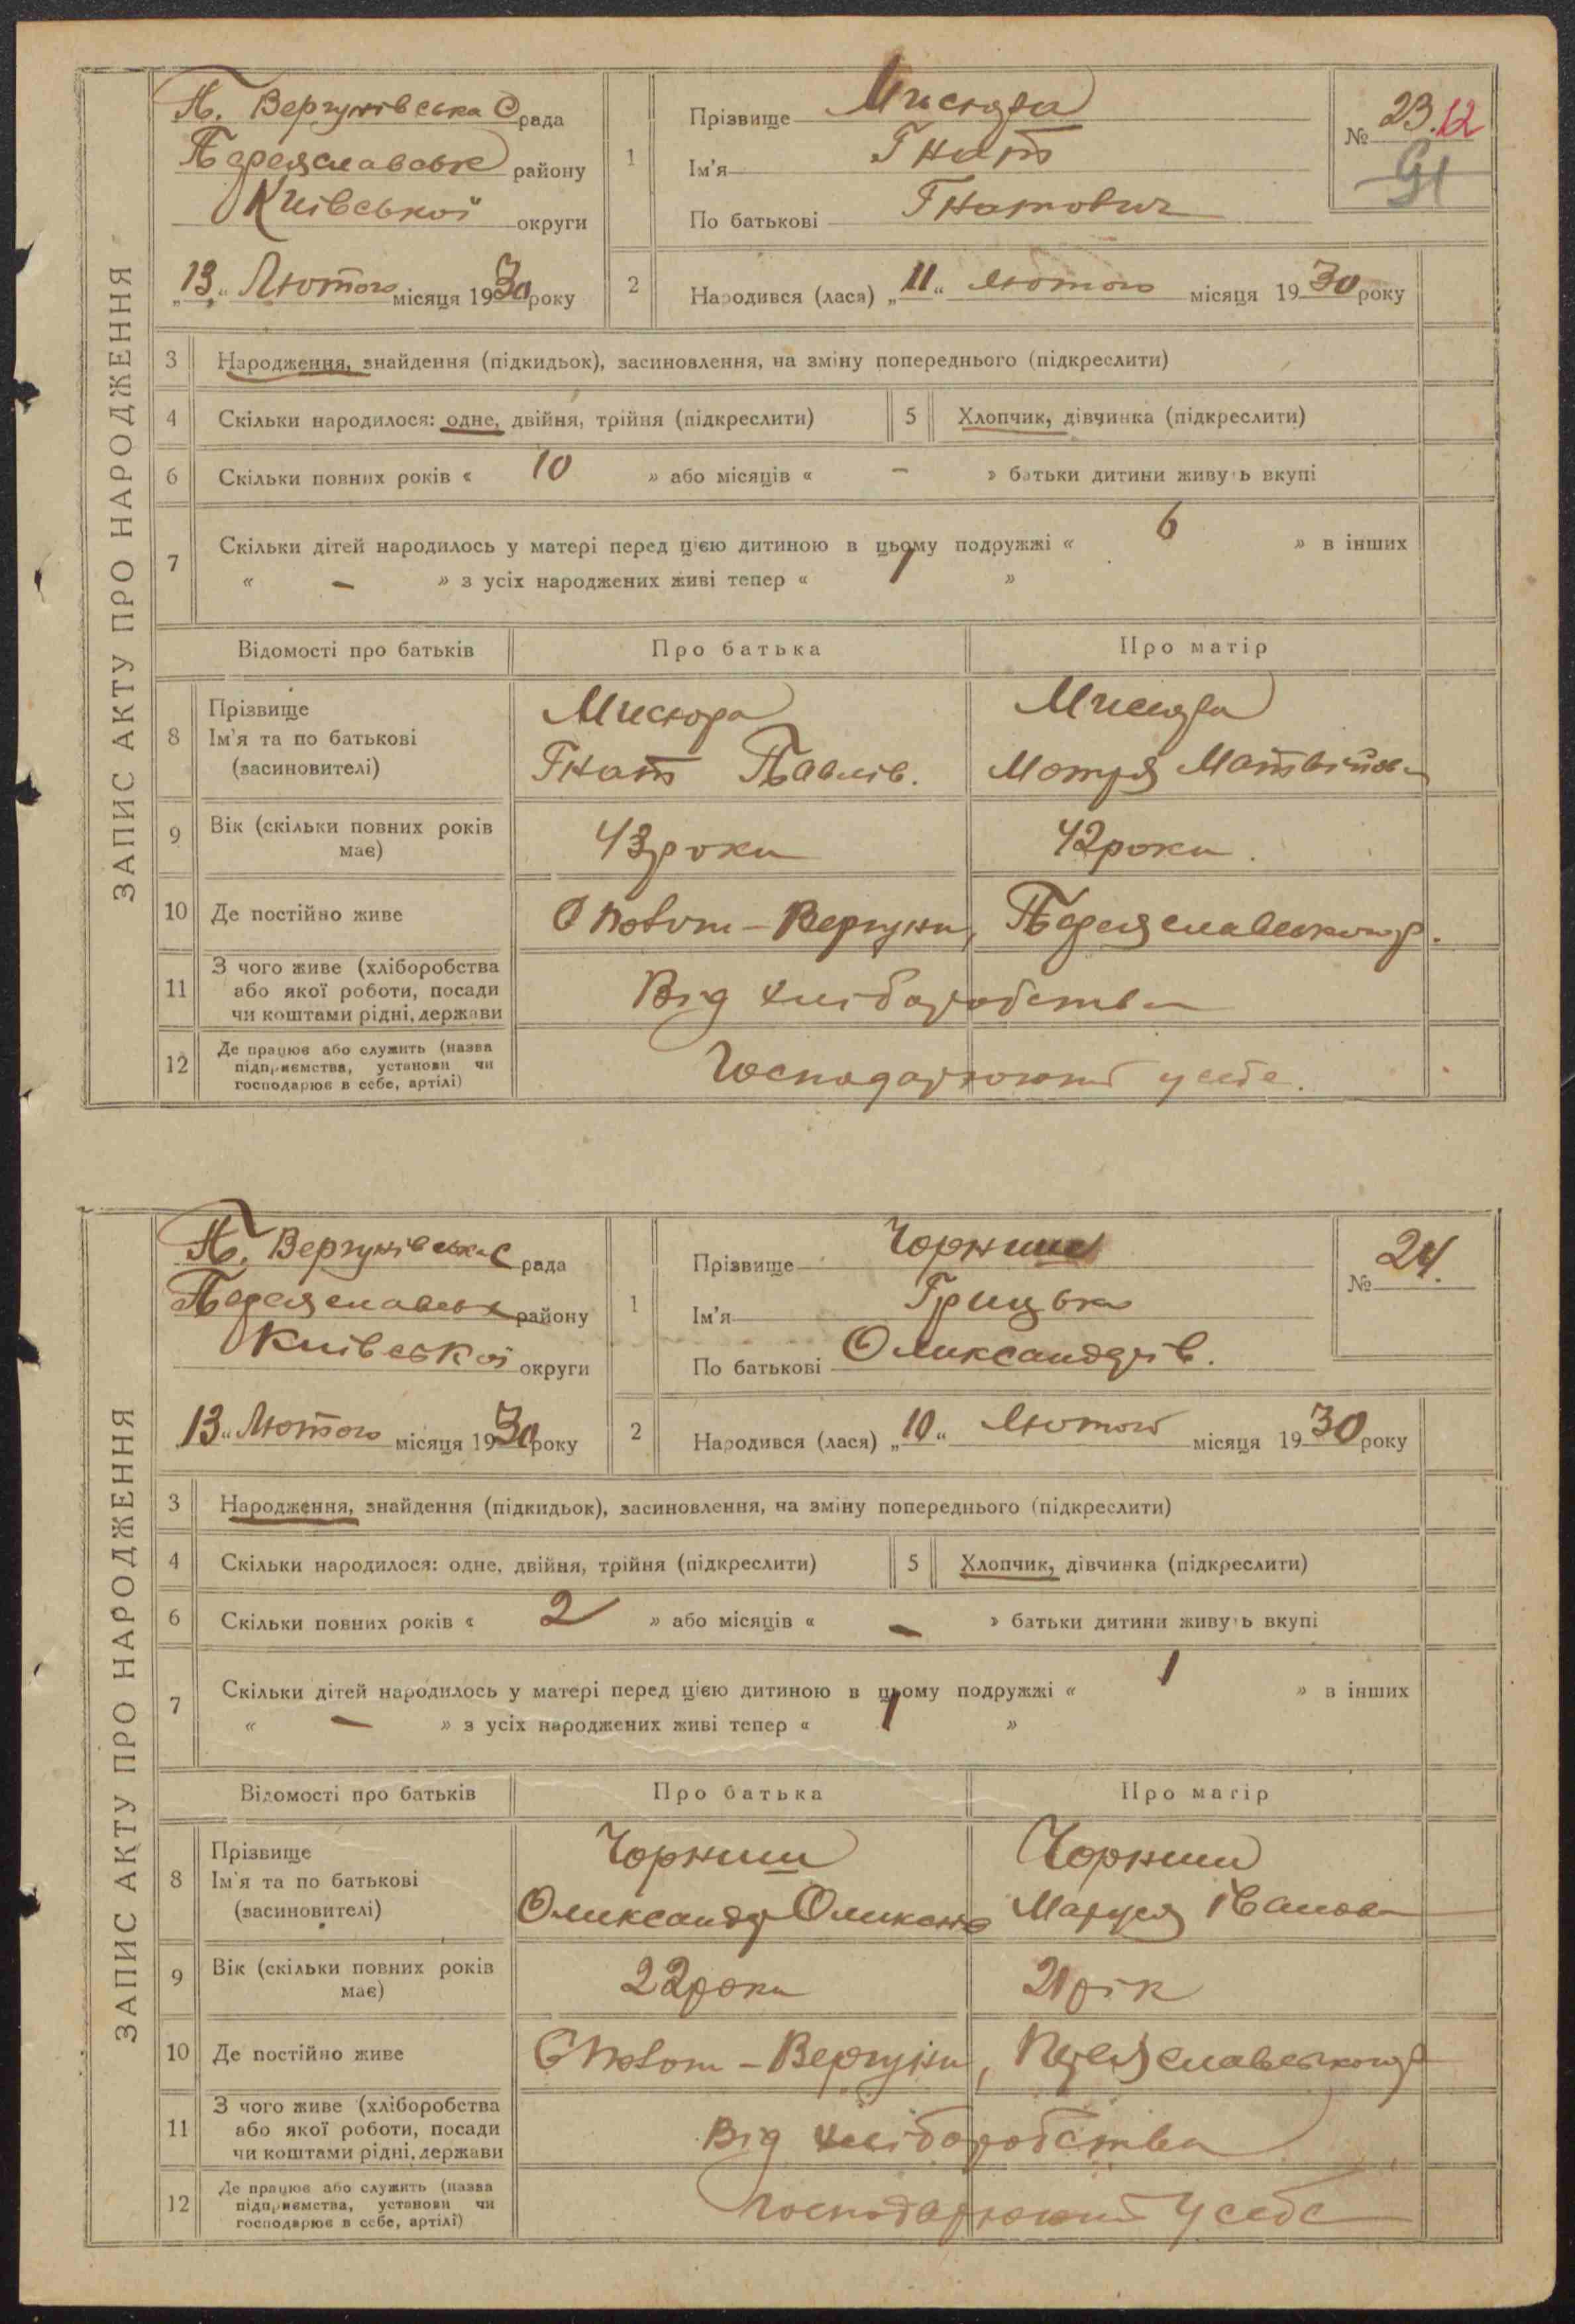 ЗАПИС АКТУ ПРО НАРОДЖЕННЯ
П. Вергунівська С рада
Переяславськ району
Київської округи
„13“ Лютого місяця 1930 року
1 Прізвище Мисюра
Ім'я Гнат
По батькові Гнатович
№ 23. 12
91
2 Народився (лася) „11“ Лютого місяця 1930 року
3 Народження, знайдення (підкидьок), засиновлення, на зміну попереднього (підкреслити)
4 Скільки народилося: одне, двійня, трійня (підкреслити) 5 Хлопчик, дівчинка (підкреслити)
6 Скільки повних років « 10 » або місяців « - » батьки дитини живуть вкупі
7 Скільки дітей народилось у матері перед цією дитиною в цьому подружжі « 6 » в інших
« - » з усіх народжених живі тепер « 1 »
Відомості про батьків Про батька Про матір
8 Прізвище Мисюра Мисюра
Ім'я та по батькові Гнат Павлів. Мотря Матвійов
(засиновителі)
9 Вік (скільки повних років має) 43 роки 42 роки.
10 Де постійно живе Вергуни, Переяславського р.
11 З чого живе (хліборобства або якої роботи, посади чи коштами рідні, держави Від хліборобства
12 Де працює або служить (назва підприємства, установи чи господарює в себе, артілі) Господарюють у себе.
ЗАПИС АКТУ ПРО НАРОДЖЕННЯ
П. Вергунівська С рада
Переяславськ району
Київської округи
„13“ Лютого місяця 1930 року
1 Прізвище Чорниш
Ім'я Грицько
По батькові Олександрів.
№ 24.
2 Народився (лася) „10“ Лютого місяця 1930 року
3 Народження, знайдення (підкидьок), засиновлення, на зміну попереднього (підкреслити)
4 Скільки народилося: одне, двійня, трійня (підкреслити) 5 Хлопчик, дівчинка (підкреслити)
6 Скільки повних років « 2 » або місяців « - » батьки дитини живуть вкупі
7 Скільки дітей народилось у матері перед цією дитиною в цьому подружжі « 1 » в інших
« - » з усіх народжених живі тепер « 1 »
Відомості про батьків Про батька Про матір
8 Прізвище Чорниш Чорниш
Ім'я та по батькові Олександр Маруся Іванов
(засиновителі)
9 Вік (скільки повних років має) 22 роки 21 рік
10 Де постійно живе Вергуни, Переяславського р
11 З чого живе (хліборобства або якої роботи, посади чи коштами рідні, держави Від хліборобства
12 Де працює або служить (назва підприємства, установи чи господарює в себе, артілі) Господарюють у себе